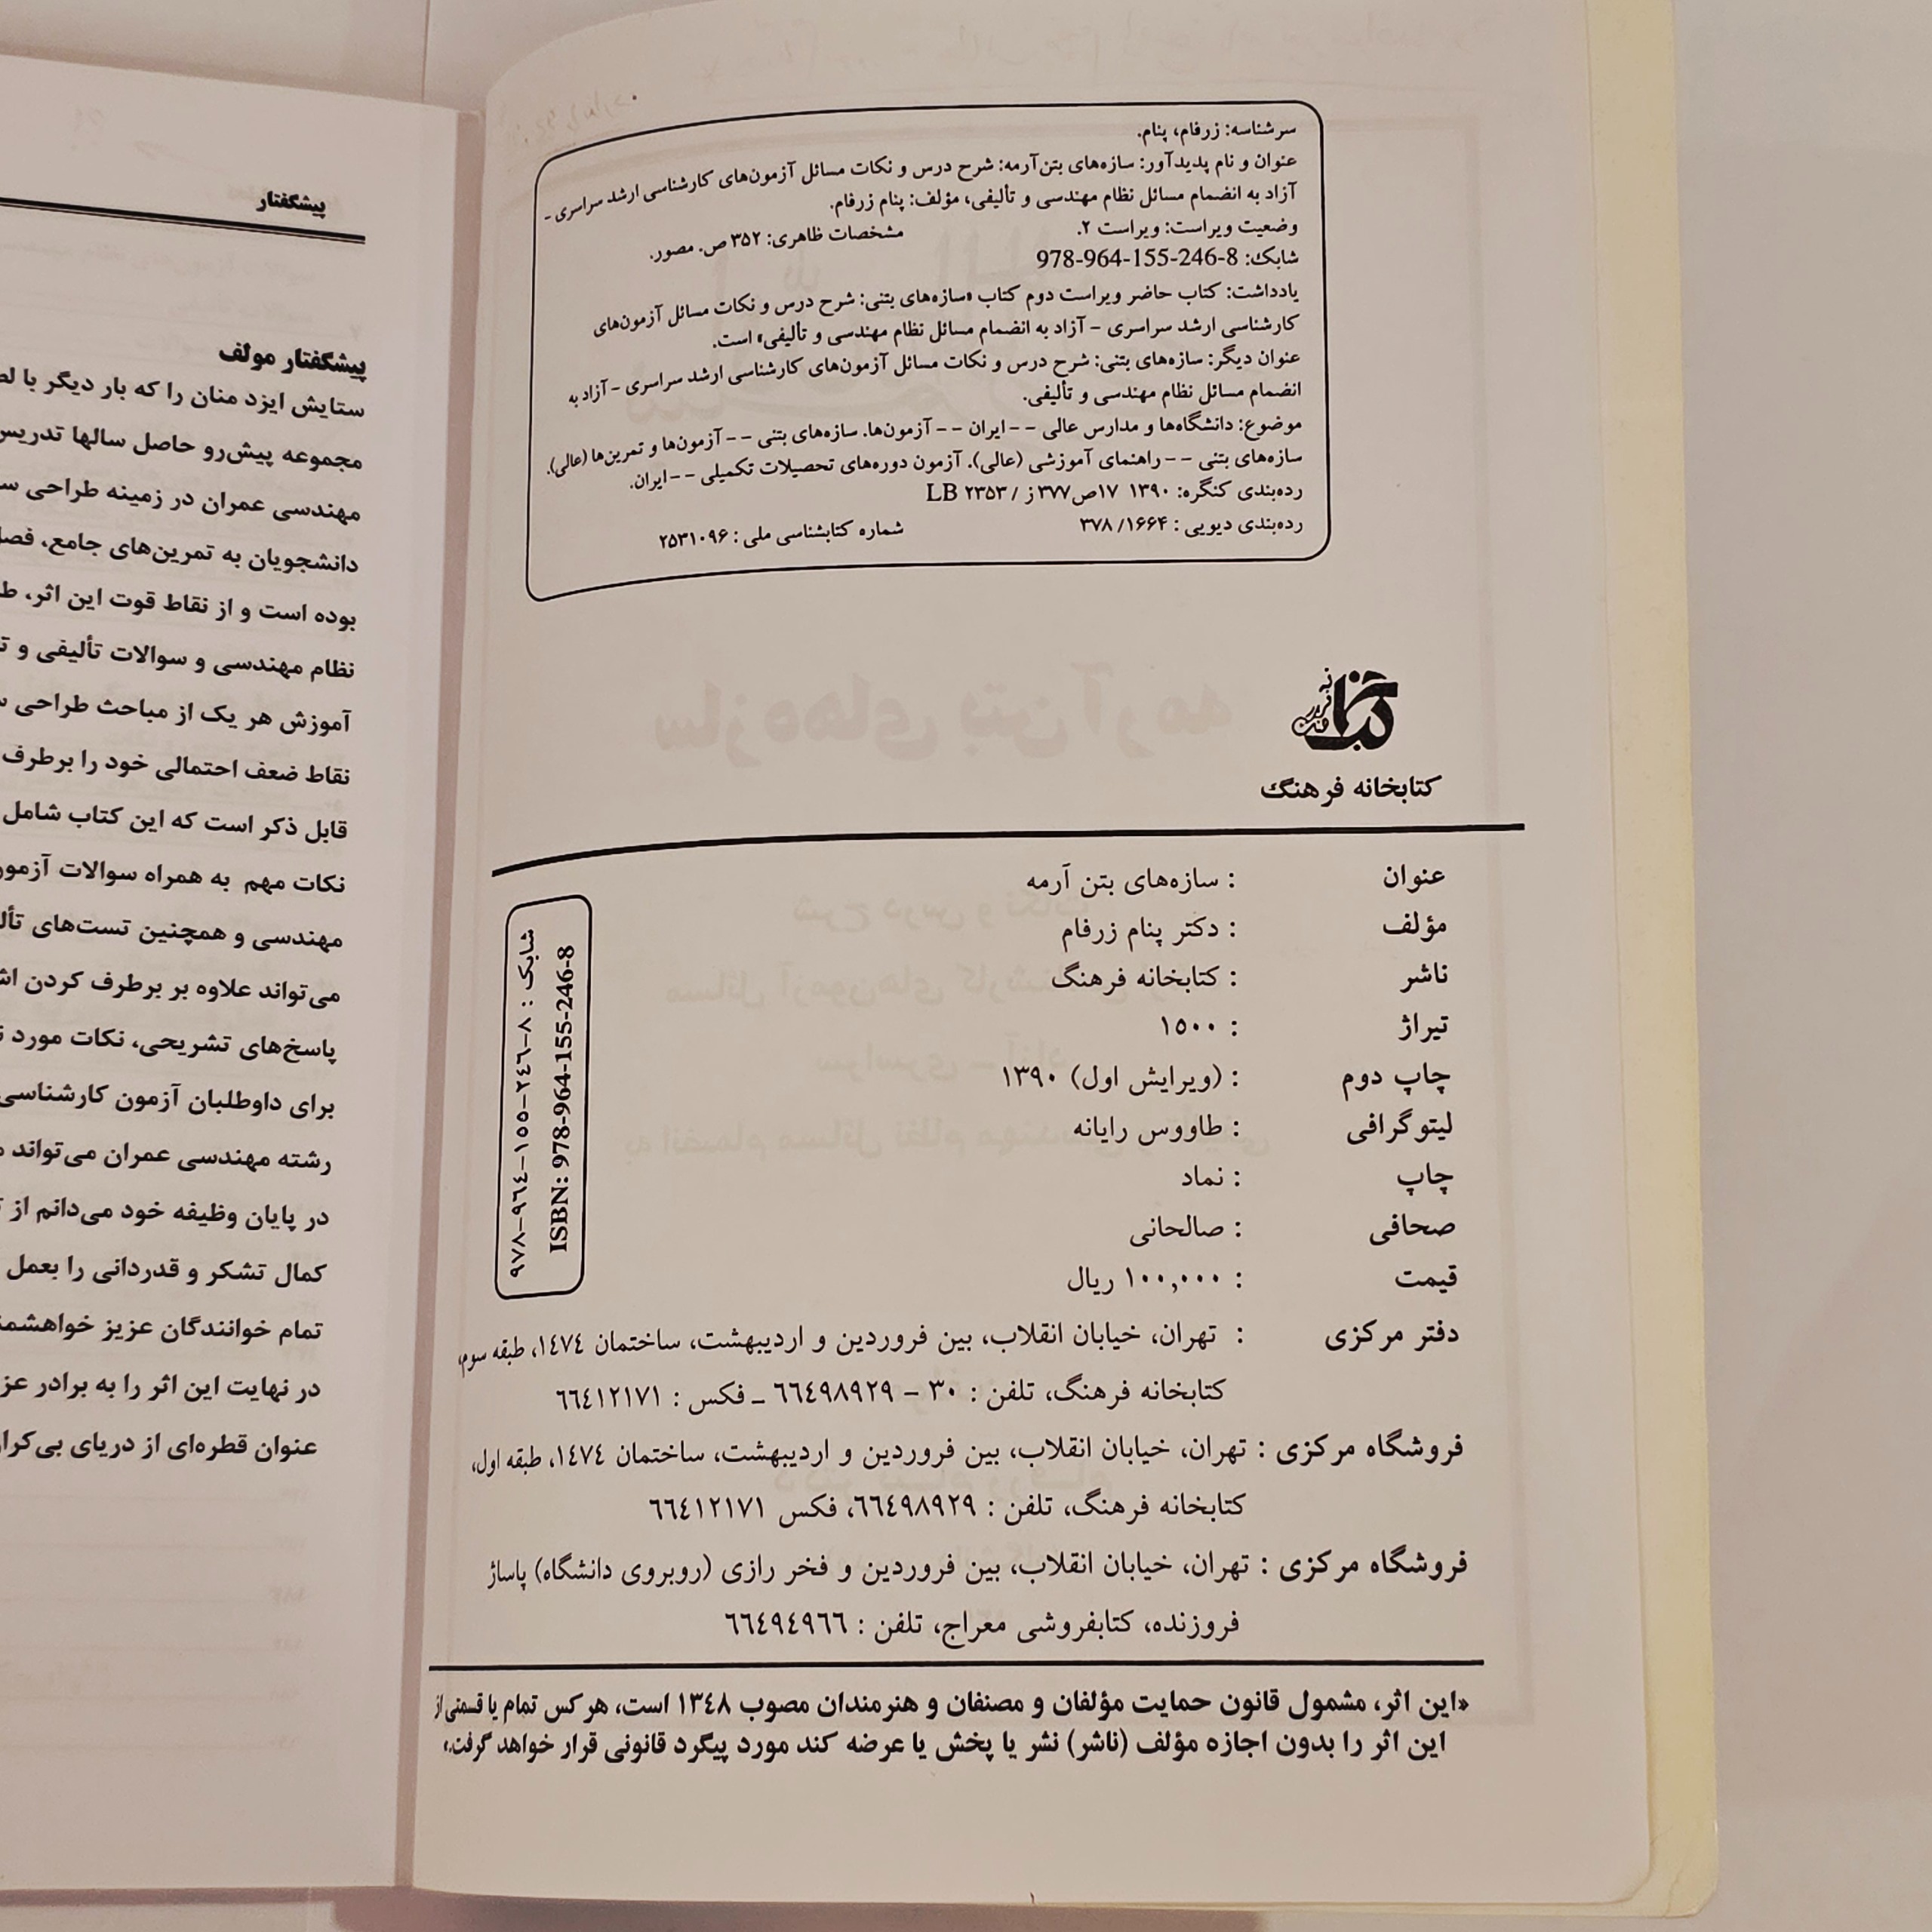 سرشناسه: زرفام، پنام.
عنوان و نام پدیدآور: سازه‌های بتن‌آرمه: شرح درس و نکات مسائل آزمون‌های کارشناسی ارشد سراسری -
آزاد به انضمام مسائل نظام مهندسی و تألیفی، مؤلف: پنام زرفام.
وضعیت ویراست: ویراست ۲. مشخصات ظاهری: ۳۵۲ ص. مصور.
شابک: 978-964-155-246-8
یادداشت: کتاب حاضر ویراست دوم کتاب «سازه‌های بتنی: شرح درس و نکات مسائل آزمون‌های
کارشناسی ارشد سراسری - آزاد به انضمام مسائل نظام مهندسی و تألیفی» است.
عنوان دیگر: سازه‌های بتنی: شرح درس و نکات مسائل آزمون‌های کارشناسی ارشد سراسری - آزاد به
انضمام مسائل نظام مهندسی و تألیفی.
موضوع: دانشگاه‌ها و مدارس عالی -- ایران -- آزمون‌ها. سازه‌های بتنی -- آزمون‌ها و تمرین‌ها (عالی).
سازه‌های بتنی -- راهنمای آموزشی (عالی). آزمون دوره‌های تحصیلات تکمیلی -- ایران.
رده‌بندی کنگره: ۱۳۹۰ ۱۷ص۳۷۷ز / LB ۲۳۵۳
رده‌بندی دیویی: ۳۷۸/۱۶۶۴ شماره کتابشناسی ملی: ۲۵۳۱۰۹۶
کتابخانه فرهنگ
عنوان : سازه‌های بتن آرمه
مؤلف : دکتر پنام زرفام
ناشر : کتابخانه فرهنگ
تیراژ : ۱۵۰۰
چاپ دوم : (ویرایش اول) ۱۳۹۰
لیتوگرافی : طاووس رایانه
چاپ : نماد
صحافی : صالحانی
قیمت : ۱۰۰,۰۰۰ ریال
دفتر مرکزی : تهران، خیابان انقلاب، بین فروردین و اردیبهشت، ساختمان ۱٤۷٤، طبقه سوم،
کتابخانه فرهنگ، تلفن : ۳۰ - ٦٦٤۹۸۹۲۹ ـ فکس : ٦٦٤۱۲۱۷۱
فروشگاه مرکزی : تهران، خیابان انقلاب، بین فروردین و اردیبهشت، ساختمان ۱٤۷٤، طبقه اول،
کتابخانه فرهنگ، تلفن : ٦٦٤۹۸۹۲۹، فکس ٦٦٤۱۲۱۷۱
فروشگاه مرکزی : تهران، خیابان انقلاب، بین فروردین و فخر رازی (روبروی دانشگاه) پاساژ
فروزنده، کتابفروشی معراج، تلفن : ٦٦٤۹٤۹٦٦
«این اثر، مشمول قانون حمایت مؤلفان و مصنفان و هنرمندان مصوب ۱۳٤۸ است، هر کس تمام یا قسمتی از
این اثر را بدون اجازه مؤلف (ناشر) نشر یا پخش یا عرضه کند مورد پیگرد قانونی قرار خواهد گرفت.»
شابک : ۸-۲٤٦-۱۵۵-۹٦٤-۹۷۸
ISBN: 978-964-155-246-8
پیشگفتار
پیشگفتار مولف
ستایش ایزد منان را که بار دیگر با
مجموعه پیش‌رو حاصل سالها تدریس
مهندسی عمران در زمینه طراحی
دانشجویان به تمرین‌های جامع،
بوده است و از نقاط قوت این اثر،
نظام مهندسی و سوالات تألیفی و
آموزش هر یک از مباحث طراحی
نقاط ضعف احتمالی خود را برطرف
قابل ذکر است که این کتاب شامل
نکات مهم به همراه سوالات
مهندسی و همچنین تست‌های
می‌تواند علاوه بر برطرف کردن
پاسخ‌های تشریحی، نکات مورد
برای داوطلبان آزمون کارشناسی
رشته مهندسی عمران می‌تواند
در پایان وظیفه خود می‌دانم از
کمال تشکر و قدردانی را بعمل
تمام خوانندگان عزیز
در نهایت این اثر را به برادر
عنوان قطره‌ای از دریای